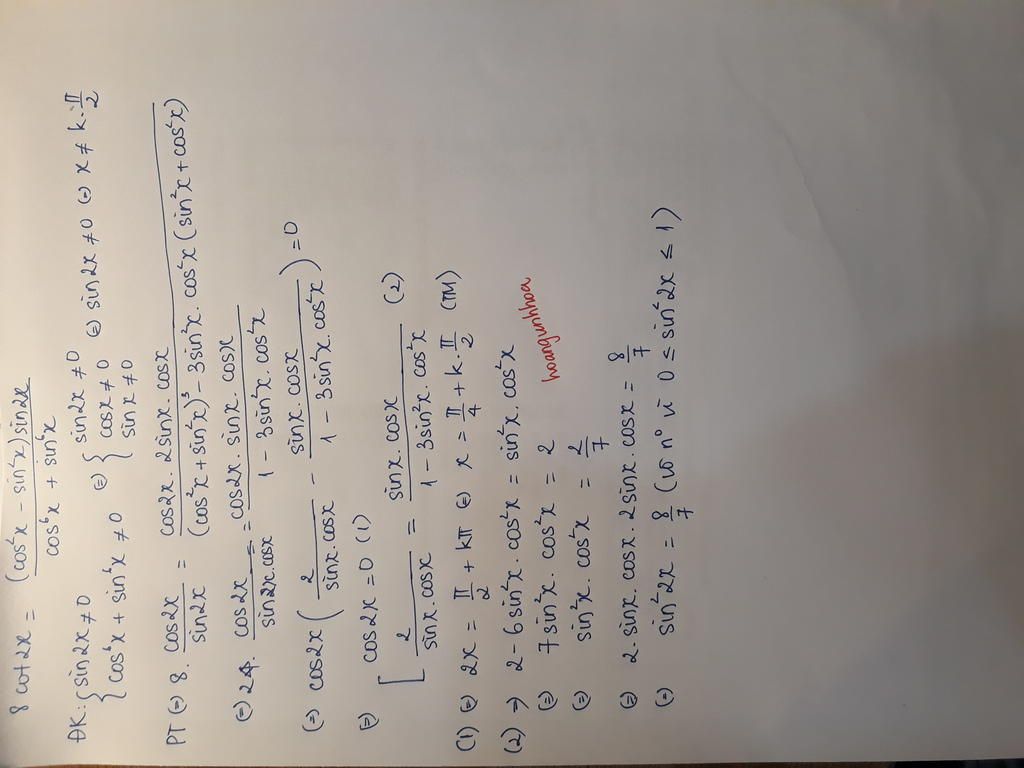 8 cot2x = (cos²x - sin²x) sin2x / (cos⁶x + sin⁶x)
ĐK: { sin2x ≠ 0 ; cos⁶x + sin⁶x ≠ 0 (=) { sin2x ≠ 0 ; cosx ≠ 0 ; sinx ≠ 0 (=) sin2x ≠ 0 (=) x ≠ k.π/2
PT (=) 8. cos2x / sin2x = cos2x. 2sinx. cosx / ((cos²x + sin²x)³ - 3sin²x. cos²x (sin²x + cos²x))
(=) 2. cos2x / sinx cosx = cos2x. sinx. cosx / (1 - 3sin²x. cos²x)
(=) cos2x ( 2 / (sinx. cosx) - sinx. cosx / (1 - 3sin²x. cos²x) ) = 0
(=) [ cos2x = 0 (1)
2 / (sinx. cosx) = sinx. cosx / (1 - 3sin²x. cos²x) (2)
(1) (=) 2x = π/2 + kπ (=) x = π/4 + k.π/2 (TM)
(2) => 2 - 6sin²x. cos²x = sin²x. cos²x
(=) 7sin²x. cos²x = 2
hoangunhhoa
(=) sin²x. cos²x = 2/7
(=) 2. sinx. cosx. 2sinx. cosx = 8/7
(=) sin²2x = 8/7 (vô n° vì 0 ≤ sin²2x ≤ 1)